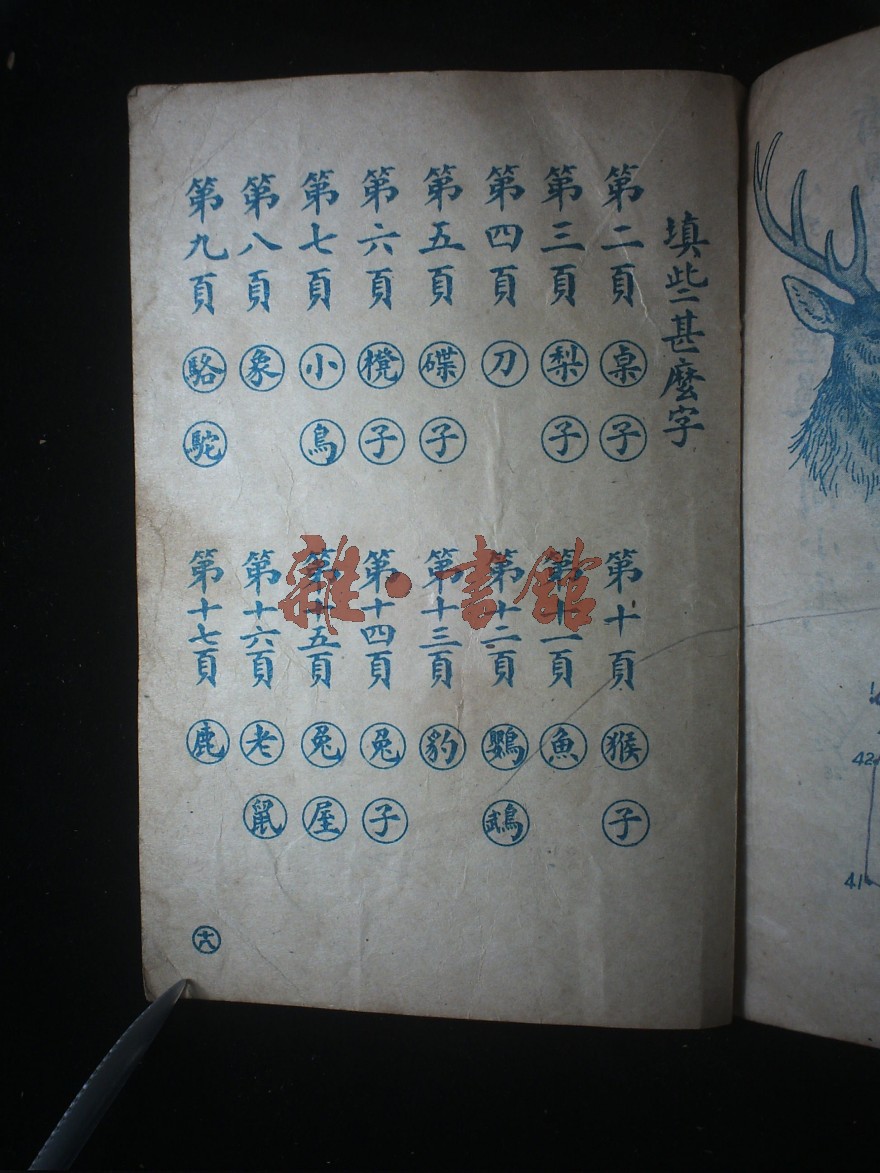 填些甚麼字
第二頁 桌子
第三頁 梨子
第四頁 刀
第五頁 碟子
第六頁 櫈子
第七頁 小鳥
第八頁 象
第九頁 駱駝
第十頁 猴子
第十一頁 魚
第十二頁 鸚鵡
第十三頁 豹
第十四頁 兔子
第十五頁 兔屋
第十六頁 老鼠
第十七頁 鹿
十八
雜·書館
42
41